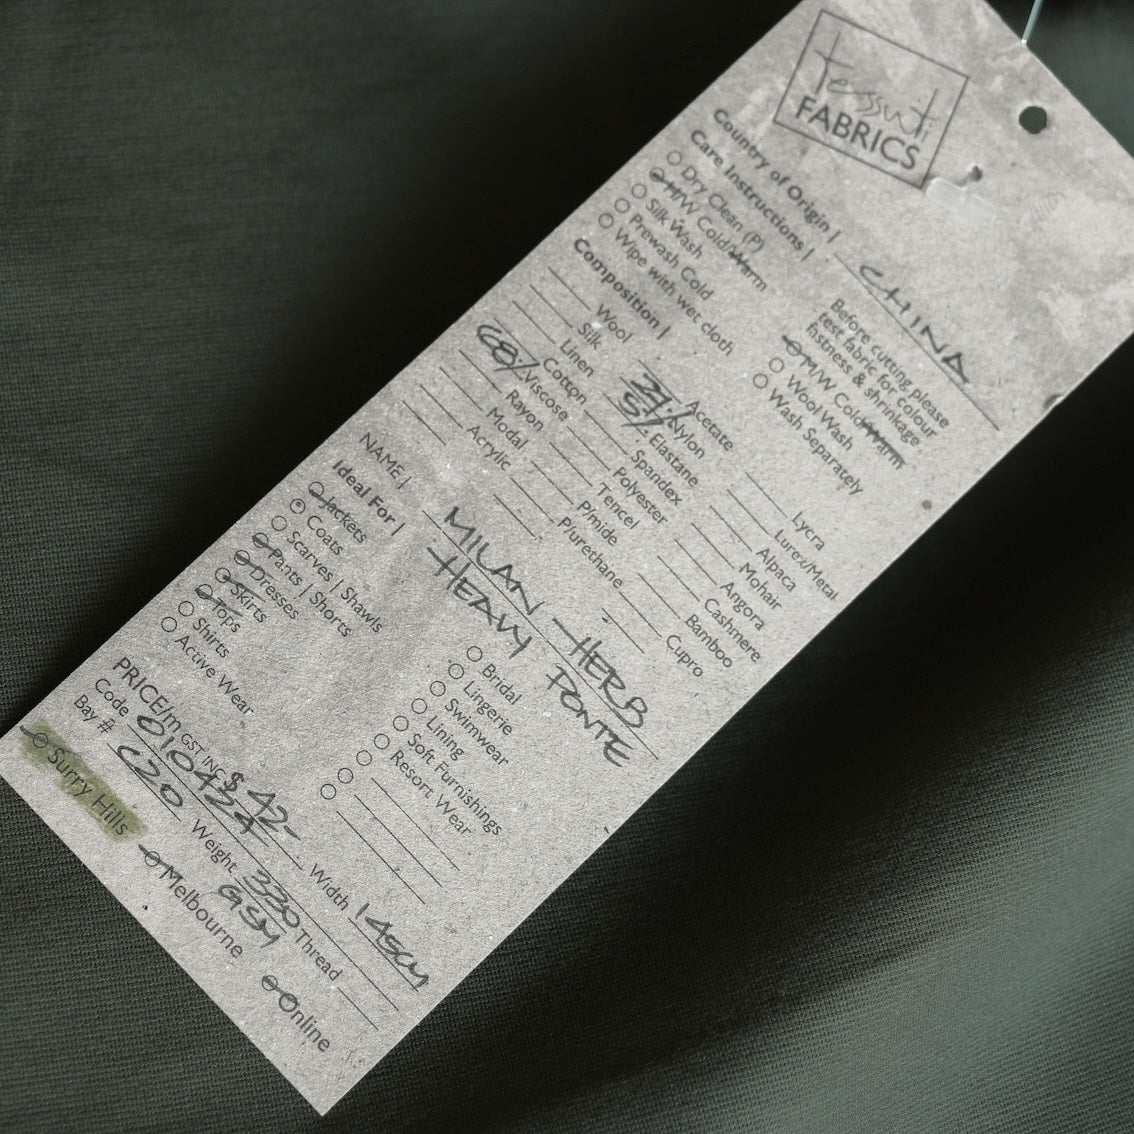 tessuti
FABRICS
Country of Origin | CHINA
Care Instructions |
Before cutting please
test fabric for colour
fastness & shrinkage
Dry Clean (P)
H/W Cold/Warm
Silk Wash
Prewash Cold
Wipe with wet cloth
M/W Cold/Warm
Wool Wash
Wash Separately
Composition |
Wool
Silk
Linen
Cotton
68% Viscose
Rayon
Modal
Acrylic
Acetate
Nylon
5% Elastane
Spandex
Polyester
Tencel
P/mide
P/urethane
Lycra
Lurex/Metal
Alpaca
Mohair
Angora
Cashmere
Bamboo
Cupro
NAME | MILAN HERB
HEAVY PONTE
Ideal For |
Jackets
Coats
Scarves | Shawls
Pants | Shorts
Dresses
Skirts
Tops
Shirts
Active Wear
Bridal
Lingerie
Swimwear
Lining
Soft Furnishings
Resort Wear
PRICE/m GST INC $42- Width 145CM
Code 010424 Weight 330 GSM Thread
Bay # C20
Surry Hills Melbourne Online